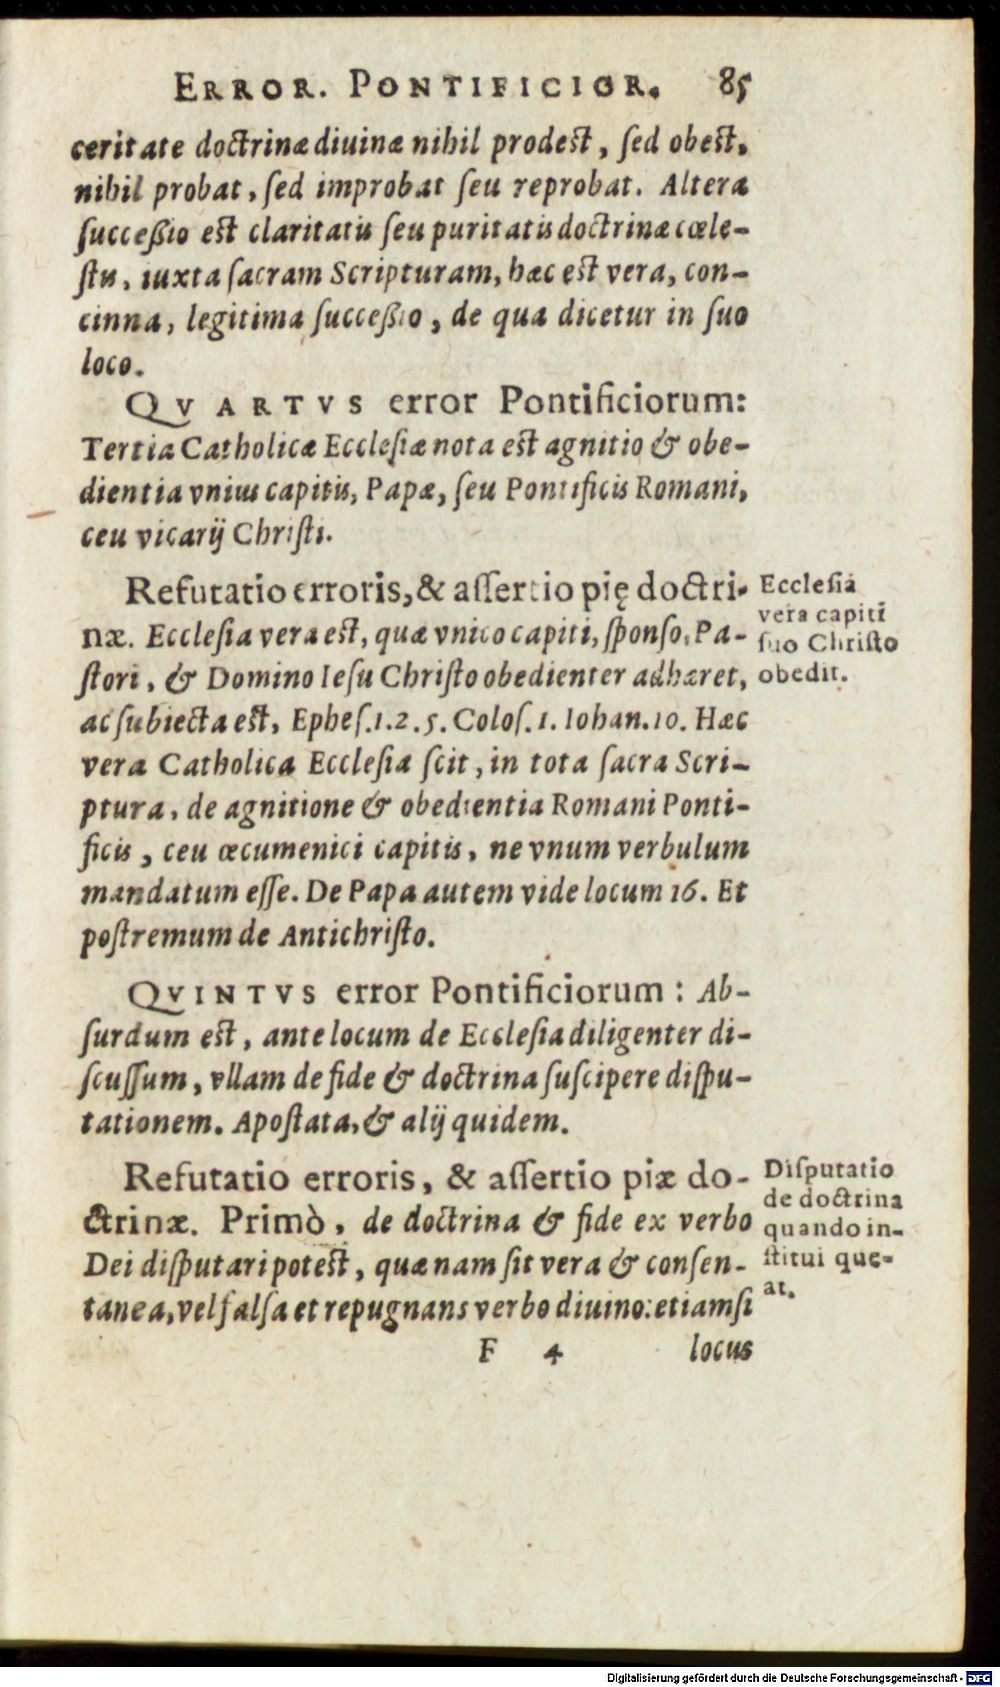 ERROR. PONTIFICIOR. 85
ceritate doctrinæ diuinæ nihil prodest, ſed obest,
nihil probat, ſed improbat ſeu reprobat. Altera
ſucceßio est claritatis ſeu puritatis doctrinæ cœle-
ſtis, iuxta ſacram Scripturam, hæc est vera, con-
cinna, legitima ſucceßio, de qua dicetur in ſuo
loco.
QVARTVS error Pontificiorum:
Tertia Catholicæ Eccleſiæ nota est agnitio & obe-
dientia vnius capitis, Papæ, ſeu Pontificis Romani,
ceu vicarij Chriſti.
Refutatio erroris, & aſſertio pię doctri-
næ. Eccleſia vera est, quæ vnico capiti, ſponſo, Pa-
ſtori, & Domino Ieſu Chriſto obedienter adhæret,
ac ſubiecta est, Epheſ.1.2.5. Coloſ.1. Iohan.10. Hæc
vera Catholica Eccleſia ſcit, in tota ſacra Scri-
ptura, de agnitione & obedientia Romani Ponti-
ficis, ceu œcumenici capitis, ne vnum verbulum
mandatum eſſe. De Papa autem vide locum 16. Et
poſtremum de Antichriſto.
Eccleſia
vera capiti
ſuo Chriſto
obedit.
QVINTVS error Pontificiorum: Ab-
ſurdum est, ante locum de Eccleſia diligenter di-
ſcuſſum, vllam de fide & doctrina ſuſcipere diſpu-
tationem. Apoſtata, & alij quidem.
Refutatio erroris, & aſſertio piæ do-
ctrinæ. Primò, de doctrina & fide ex verbo
Dei diſputari potest, quænam ſit vera & conſen-
tanea, vel falſa et repugnans verbo diuino: etiamſi
Diſputatio
de doctrina
quando in-
ſtitui que-
at.
F 4 locus
Digitalisierung gefördert durch die Deutsche Forschungsgemeinschaft - DFG